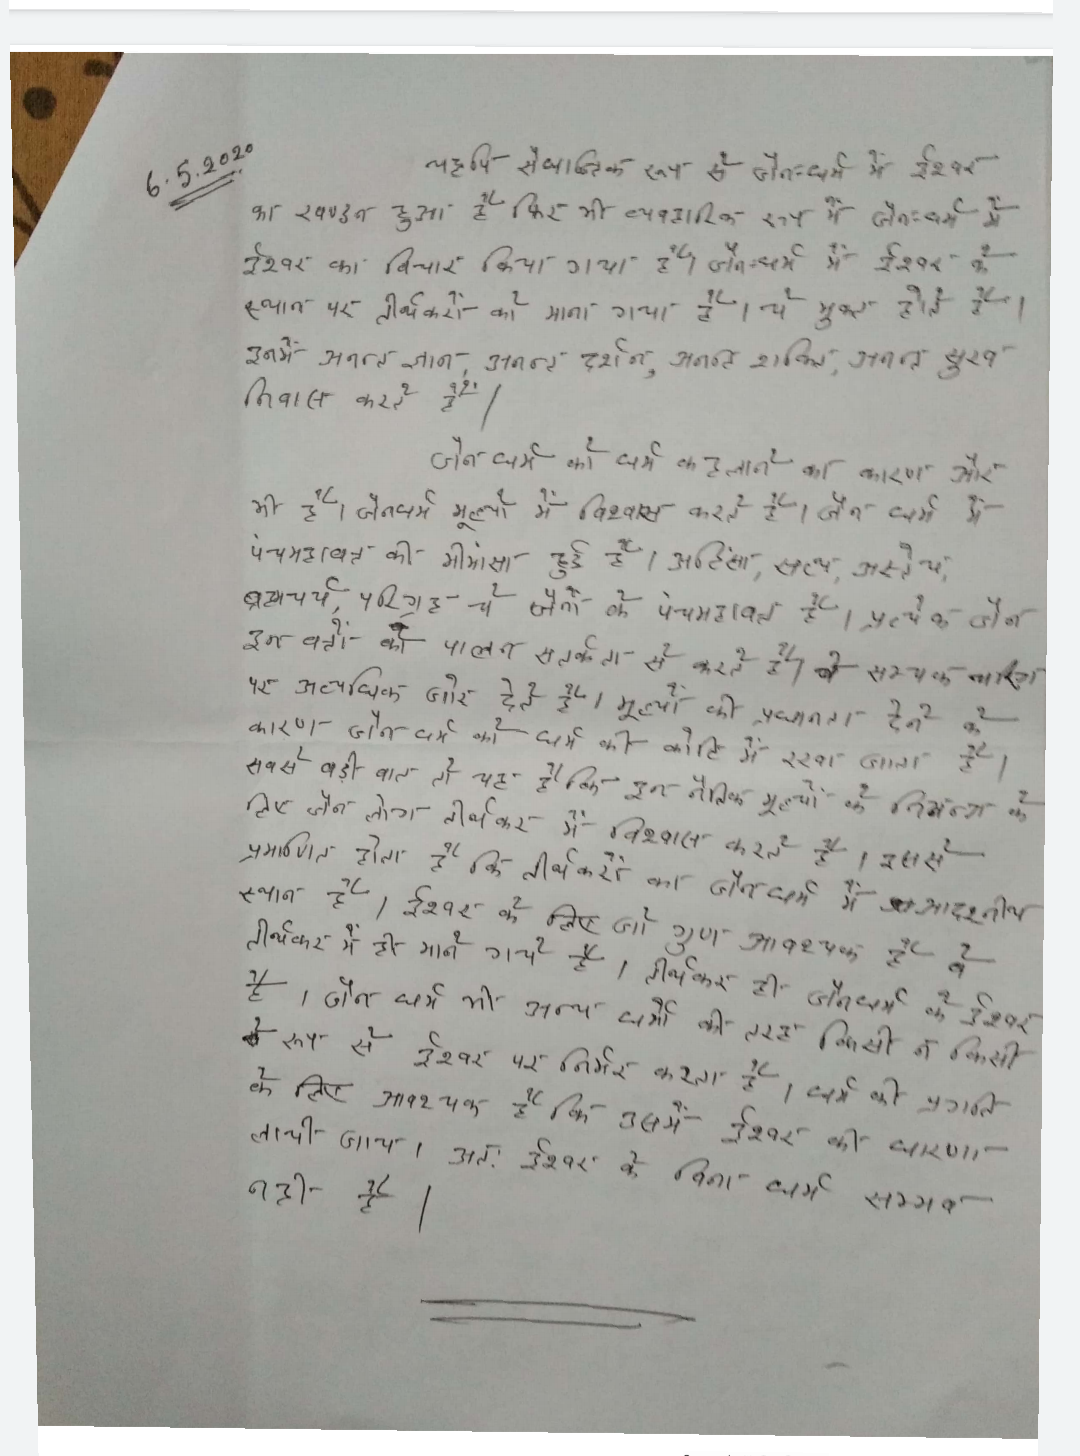 6.5.2020
यद्यपि सैद्धान्तिक रूप से जैन-धर्म में ईश्वर
का खण्डन हुआ है फिर भी व्यवहारिक रूप में जैन-धर्म में
ईश्वर का विचार किया गया है। जैन-धर्म में ईश्वर के
स्थान पर तीर्थकरों को माना गया है। ये मुक्त होते हैं।
इनमें अनन्त ज्ञान, अनन्त दर्शन, अनन्त शक्ति, अनन्त सुख
निवास करते हैं।
जैन धर्म को धर्म कहलाने का कारण और
भी है। जैनधर्म मूल्यों में विश्वास करते हैं। जैन धर्म में
पंचमहाव्रत की मीमांसा हुई है। अहिंसा, सत्य, अस्तेय,
ब्रह्मचर्य, परिग्रह ये जैनों के पंचमहाव्रत हैं। प्रत्येक जैन
इन व्रतों का पालन सतर्कता से करते हैं। वे सम्यक
पर अत्यधिक जोर देते हैं। मूल्यों की प्रधानता देने के
कारण जैन धर्म को धर्म की कोटि में रखा जाता है।
सबसे बड़ी बात तो यह है कि इन नैतिक मूल्यों के के
लिए जैन लोग तीर्थकर में विश्वास करते हैं। इससे
प्रमाणित होता है कि तीर्थकरों का जैनधर्म में आदरनीय
स्थान है। ईश्वर के लिए जो गुण आवश्यक हैं वे
तीर्थकर में ही माने गये हैं। तीर्थकर ही जैनधर्म के ईश्वर
हैं। जैन धर्म भी अन्य धर्मों की तरह किसी न किसी
रूप से ईश्वर पर निर्भर करता है। धर्म की प्रगति
के लिए आवश्यक है कि उसमें ईश्वर की धारणा
लायी जाय। अतः ईश्वर के बिना धर्म सम्भव
नहीं है।